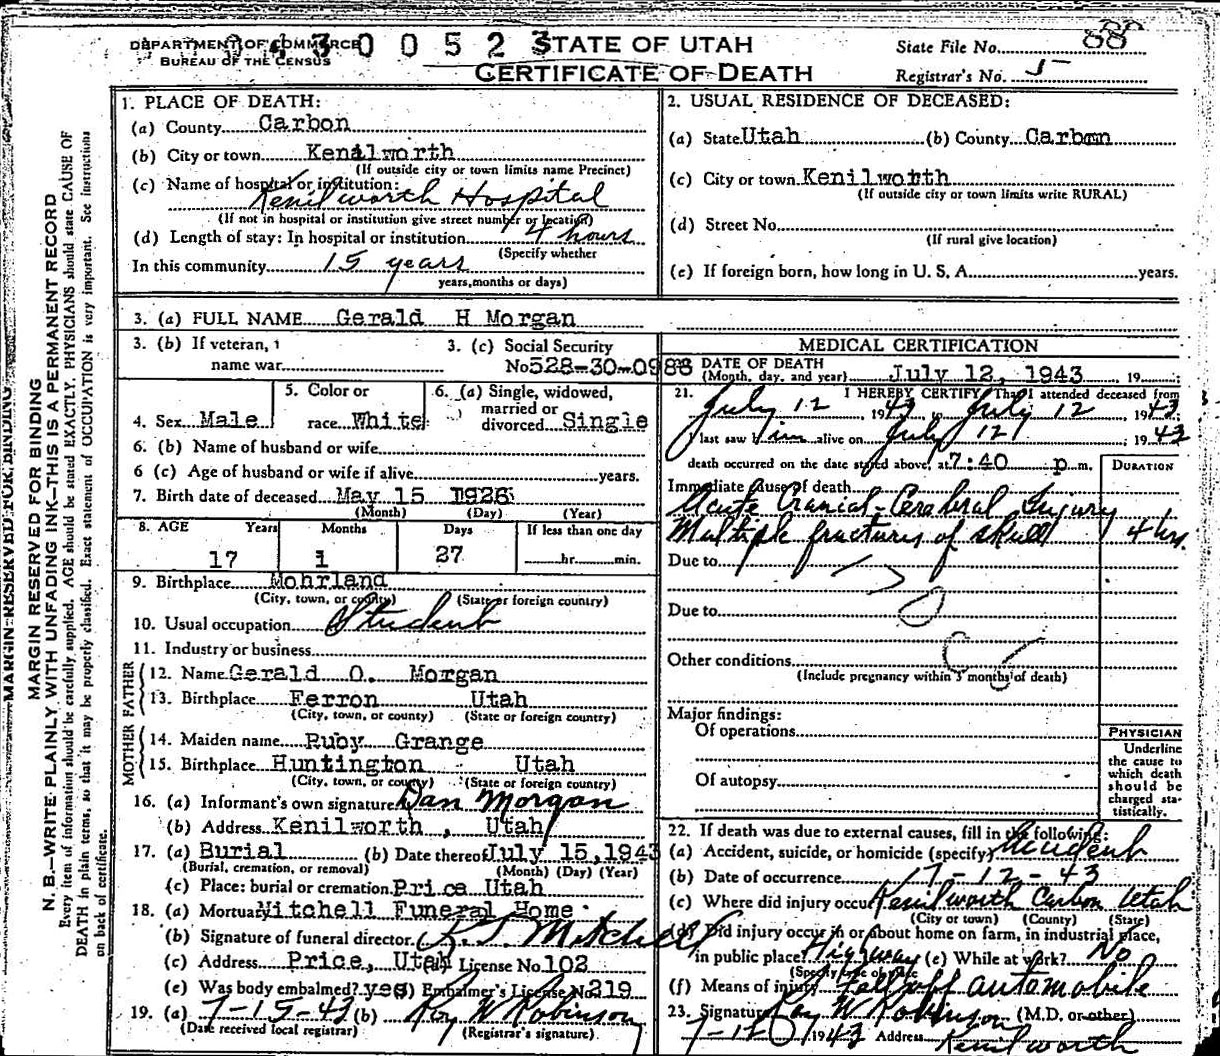 DEPARTMENT OF COMMERCE
BUREAU OF THE CENSUS
3430052 3
STATE OF UTAH
CERTIFICATE OF DEATH
State File No. 88
Registrar's No. 5
MARGIN RESERVED FOR BINDING
MARGIN RESERVED FOR BINDING
N. B.—WRITE PLAINLY, WITH UNFADING INK—THIS IS A PERMANENT RECORD
Every item of information should be carefully supplied. AGE should be stated EXACTLY. PHYSICIANS should state CAUSE OF
DEATH in plain terms, so that it may be properly classified. Exact statement of OCCUPATION is very important. See Instructions
on back of certificate.
1. PLACE OF DEATH:
(a) County Carbon
(b) City or town Kenilworth
(If outside city or town limits name Precinct)
(c) Name of hospital or institution:
Kenilworth Hospital
(If not in hospital or institution give street number or location)
(d) Length of stay: In hospital or institution 4 hours
(Specify whether
In this community 15 years
years, months or days)
2. USUAL RESIDENCE OF DECEASED:
(a) State Utah (b) County Carbon
(c) City or town Kenilworth
(If outside city or town limits write RURAL)
(d) Street No.
(If rural give location)
(e) If foreign born, how long in U. S. A. years.
3. (a) FULL NAME Gerald H Morgan
3. (b) If veteran,
name war
3. (c) Social Security
No 528-30-0988
4. Sex Male
5. Color or
race White
6. (a) Single, widowed,
married or
divorced Single
6. (b) Name of husband or wife
6 (c) Age of husband or wife if alive years.
7. Birth date of deceased May 15 1926
(Month) (Day) (Year)
8. AGE Years Months Days If less than one day
17 1 27 hr. min.
9. Birthplace Mohrland
(City, town, or county) (State or foreign country)
10. Usual occupation Student
11. Industry or business
FATHER
12. Name Gerald O. Morgan
13. Birthplace Ferron Utah
(City, town, or county) (State or foreign country)
MOTHER
14. Maiden name Ruby Grange
15. Birthplace Huntington Utah
(City, town, or county) (State or foreign country)
16. (a) Informant's own signature Dan Morgan
(b) Address Kenilworth, Utah
17. (a) Burial (b) Date thereof July 15, 1943
(Burial, cremation, or removal) (Month) (Day) (Year)
(c) Place: burial or cremation Price Utah
18. (a) Mortuary Mitchell Funeral Home
(b) Signature of funeral director
(c) Address Price, Utah License No. 102
(e) Was body embalmed? yes Embalmer's License No. 219
19. (a) 7-15-43 (b) Roy W Robinson
(Date received local registrar) (Registrar's signature)
MEDICAL CERTIFICATION
DATE OF DEATH
(Month, day, and year) July 12, 1943 19
21. I HEREBY CERTIFY, That I attended deceased from
July 12 1943 to July 12 1943
I last saw him alive on July 12 1943
death occurred on the date stated above, at 7:40 p m.
DURATION
Immediate cause of death
Acute Cranial-Cerebral Injury
Multiple fractures of skull 4 hrs.
Due to
Due to
Other conditions
(Include pregnancy within 3 months of death)
Major findings:
Of operations
Of autopsy
PHYSICIAN
Underline
the cause to
which death
should be
charged sta-
tistically.
22. If death was due to external causes, fill in the following:
(a) Accident, suicide, or homicide (specify) Accident
(b) Date of occurrence 7-12-43
(c) Where did injury occur Kenilworth Carbon Utah
(City or town) (County) (State)
(d) Did injury occur in or about home on farm, in industrial place,
in public place? Highway (e) While at work? No
(Specify type of place
(f) Means of injury Fell off automobile
23. Signature Roy W Robinson (M.D. or other)
1943 Address Kenilworth